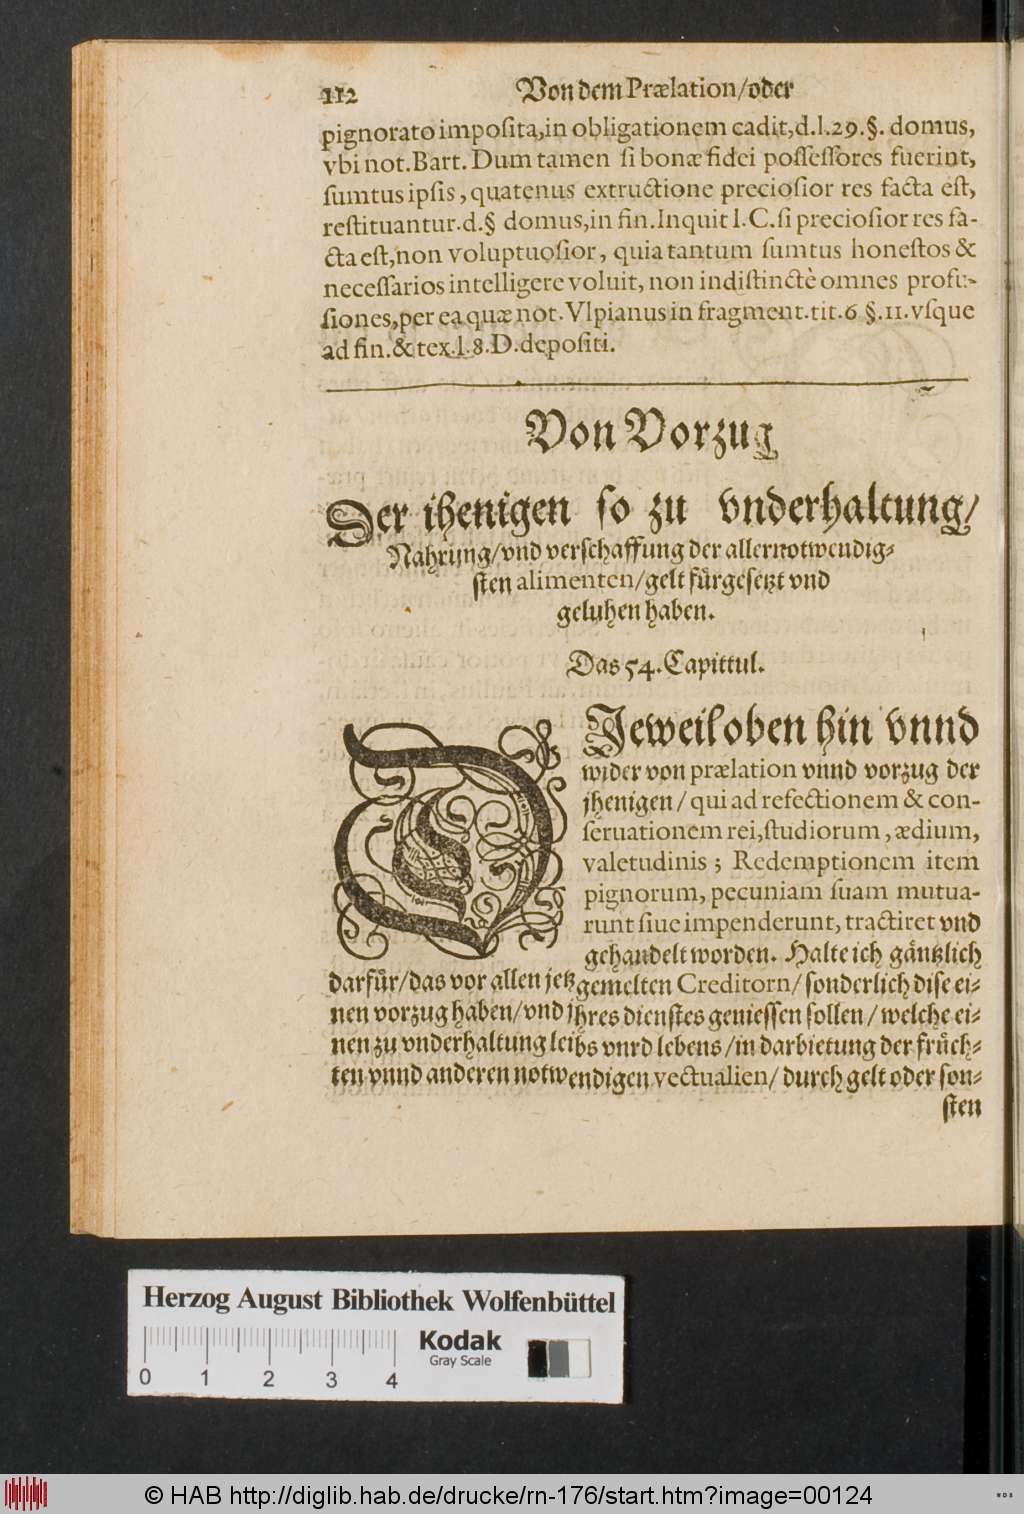 112 Von dem Prælation/oder
pignorato imposita,in obligationem cadit,d.l.29.§. domus,
vbi not.Bart. Dum tamen si bonæ fidei possessores fuerint,
sumtus ipsis, quatenus extructione preciosior res facta est,
restituantur.d.§ domus,in fin.Inquit I.C.si preciosior res fa-
cta est,non voluptuosior, quia tantum sumtus honestos &
necessarios intelligere voluit, non indistinctè omnes profu-
siones,per ea quæ not. Vlpianus in fragment.tit.6 §.11.vsque
ad fin.& tex.l.8.D.depositi.
Von Vorzug
Der ihenigen so zu vnderhaltung/
Nahrung/vnd verschaffung der allernotwendig-
sten alimenten/gelt fürgesetzt vnd
geluhen haben.
Das 54. Capittul.
DJeweil oben hin vnnd
wider von prælation vnnd vorzug der
jhenigen/ qui ad refectionem & con-
seruationem rei,studiorum, ædium,
valetudinis; Redemptionem item
pignorum, pecuniam suam mutua-
runt siue impenderunt, tractiret vnd
gehandelt worden. Halte ich gäntzlich
darfür/das vor allen jetzgemelten Creditorn/ sonderlich dise ei-
nen vorzug haben/vnd jhres dienstes geniessen sollen/ welche ei-
nen zu vnderhaltung leibs vnrd lebens/in darbietung der früch-
ten vnnd anderen notwendigen vectualien/ durch gelt oder son-
sten
Herzog August Bibliothek Wolfenbüttel
Kodak
Gray Scale
0 1 2 3 4
© HAB http://diglib.hab.de/drucke/rn-176/start.htm?image=00124